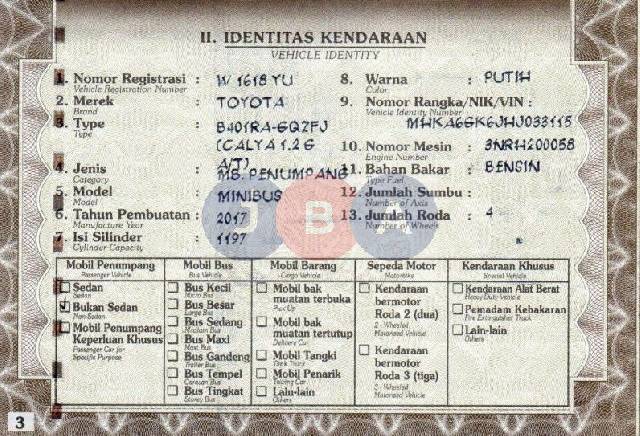 II. IDENTITAS KENDARAAN
VEHICLE IDENTITY
1. Nomor Registrasi : W 1618 YU
Vehicle Registration Number
2. Merek : TOYOTA
Brand
3. Type : B401RA-GQZFJ
Type
(CALYA 1.2 G
A/T)
4. Jenis : MB. PENUMPANG
Category
5. Model : MINIBUS
Model
6. Tahun Pembuatan : 2017
Manufacture Year
7. Isi Silinder : 1197
Cylinder Capacity
8. Warna : PUTIH
Color
9. Nomor Rangka/NIK/VIN :
Vehicle Identity Number
MHKA6GK6JHJ033115
10. Nomor Mesin : 3NRH200058
Engine Number
11. Bahan Bakar : BENSIN
Type Fuel
12. Jumlah Sumbu :
Number of Axis
13. Jumlah Roda : 4
Number of Wheels
JBA
Mobil Penumpang
Passenger Vehicle
Sedan
Sedan
Bukan Sedan
Non-Sedan
Mobil Penumpang
Keperluan Khusus
Passenger Car for
Specific Purpose
Mobil Bus
Bus Vehicle
Bus Kecil
Micro Bus
Bus Besar
Large Bus
Bus Sedang
Medium Bus
Bus Maxi
Maxi Bus
Bus Gandeng
Bus Tempel
Bus Tingkat
Mobil Barang
Cargo Vehicle
Mobil bak
muatan terbuka
Pick Up
Mobil bak
muatan tertutup
Delivery Car
Mobil Tangki
Mobil Penarik
Towing Car
Lain-lain
Others
Sepeda Motor
Motorbike
Kendaraan
bermotor
Roda 2 (dua)
2 - Wheeled
Motorized Vehicle
Kendaraan
bermotor
Roda 3 (tiga)
Motorized Vehicle
Kendaraan Khusus
Special Vehicle
Kendaraan Alat Berat
Heavy Duty Vehicle
Pemadam Kebakaran
Fire Extinguished Truck
Lain-lain
Others
3